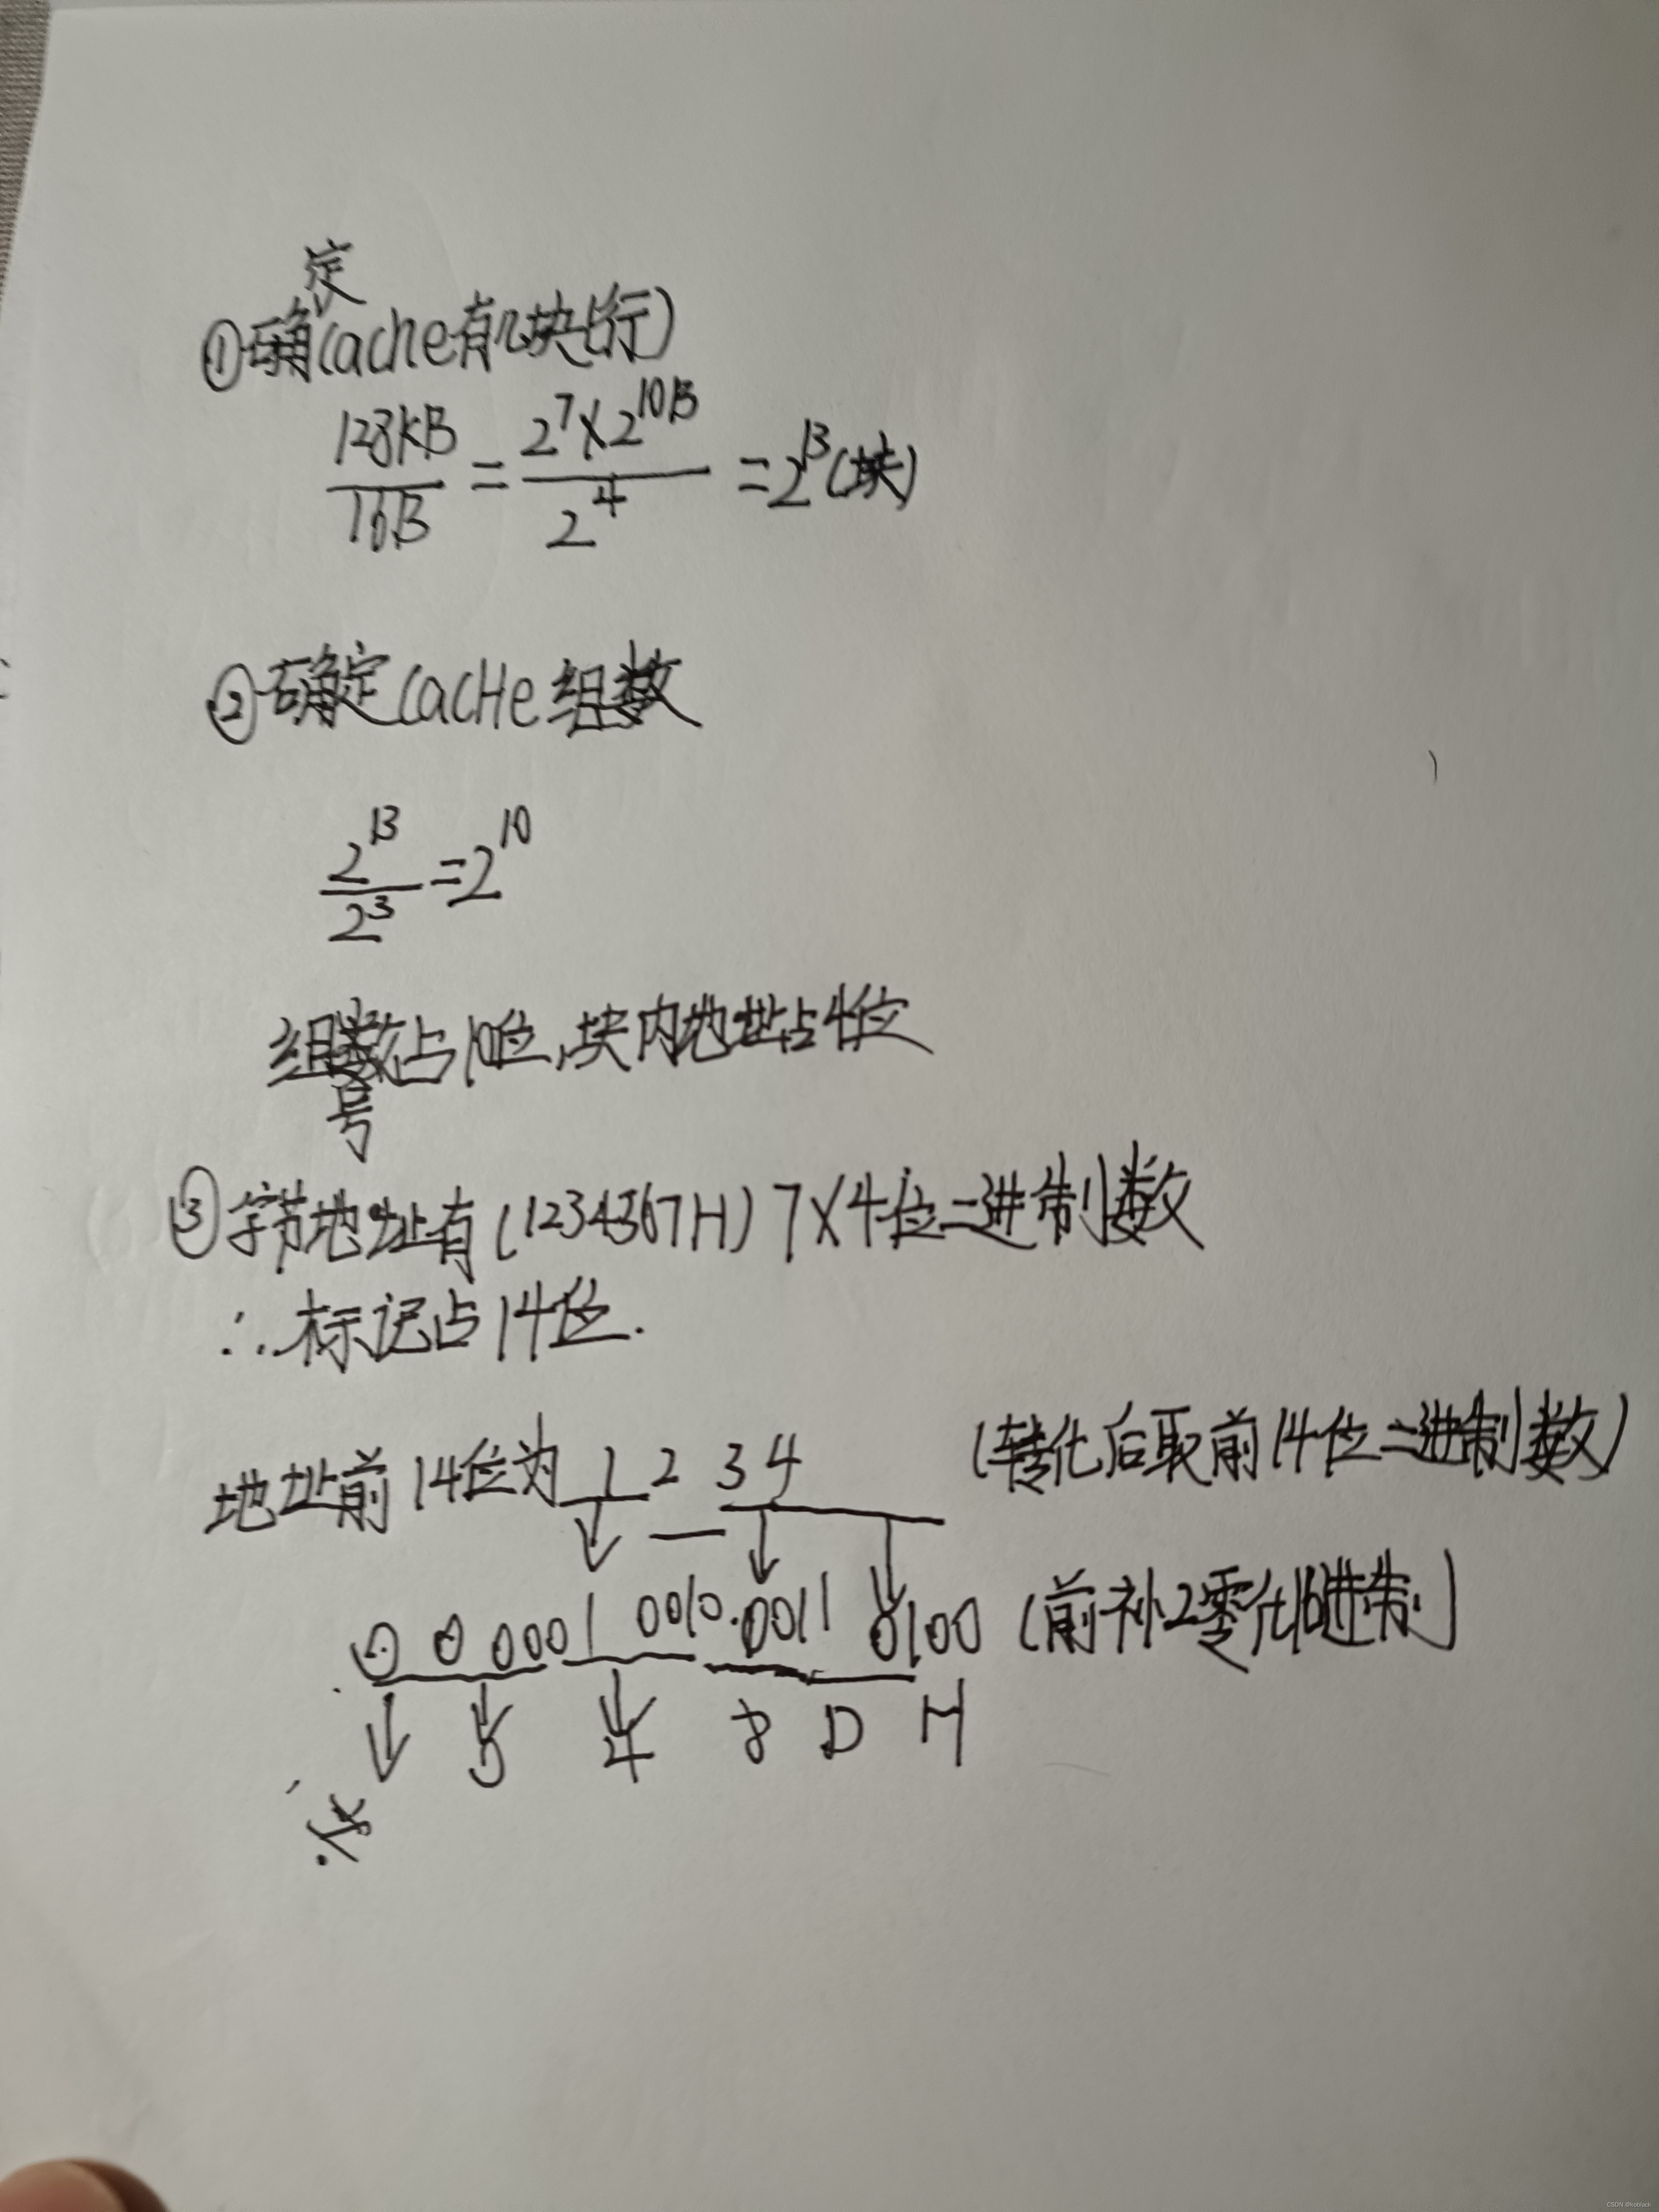 定
①确Cache有几块(行)
128KB/16B = 2^7×2^10B/2^4 = 2^13(块)
②确定CacHe组数
2^13/2^3=2^10
组数占10位,块内地址占4位
号
③字节地址有(1234567H) 7×4位二进制数
∴标记占14位.
地址前14位为 1 2 3 4 (转化后取前14位二进制数)
0 0 0001 0010 0011 0100 (前补2零化16进制)
0 4 8 D H
CSDN @koblack